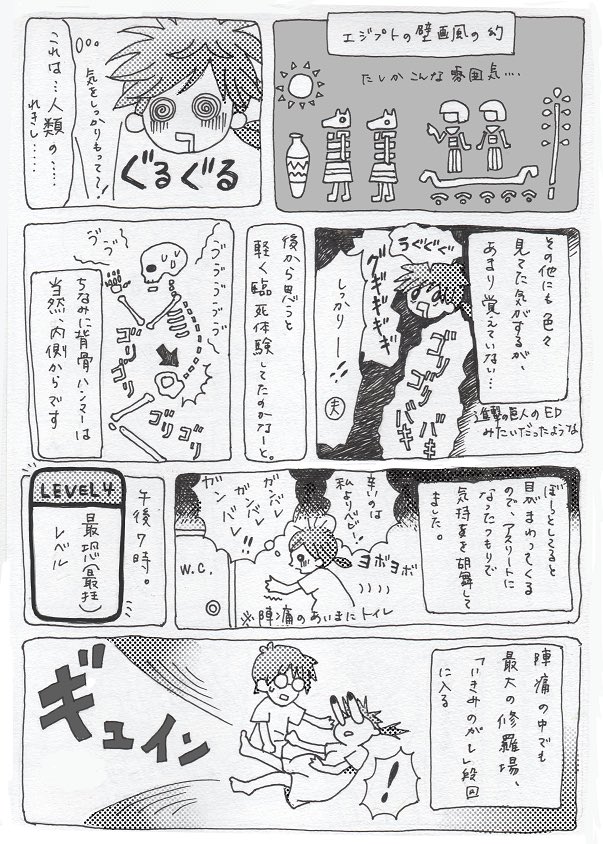 エジプトの壁画風の幻
たしかこんな雰囲気‥‥
気をしっかりもって〜!
これは…人類の……
れきし……
ぐるぐる
その他にも色々
見てた気がするが、
あまり覚えていない…
進撃の巨人のED
みたいだったような
うぐぐぐ
グギギギギ
しっかりー!
夫
ゴリゴリ
バキバキ
後から思うと
軽く臨死体験してたのかなーと。
ヴヴ
ヴヴヴヴヴ
ゴリゴリ
ゴリゴリ
ちなみに背骨ハンマーは
当然、内側からです
ぼーっとしてると
目がまわってくる
ので、アスリートに
なったつもりで
気持ちを鼓舞して
ました。
辛いのは
私よりベビー!
ガンバレ
ガンバレ
ガンバレ!!
ヨボヨボ
W.C.
※陣痛のあいまにトイレ
午後7時。
LEVEL4
最恐(最狂)
レベル
陣痛の中でも
最大の修羅場、
「いきみのがし」段階
に入る
!
ギュイン